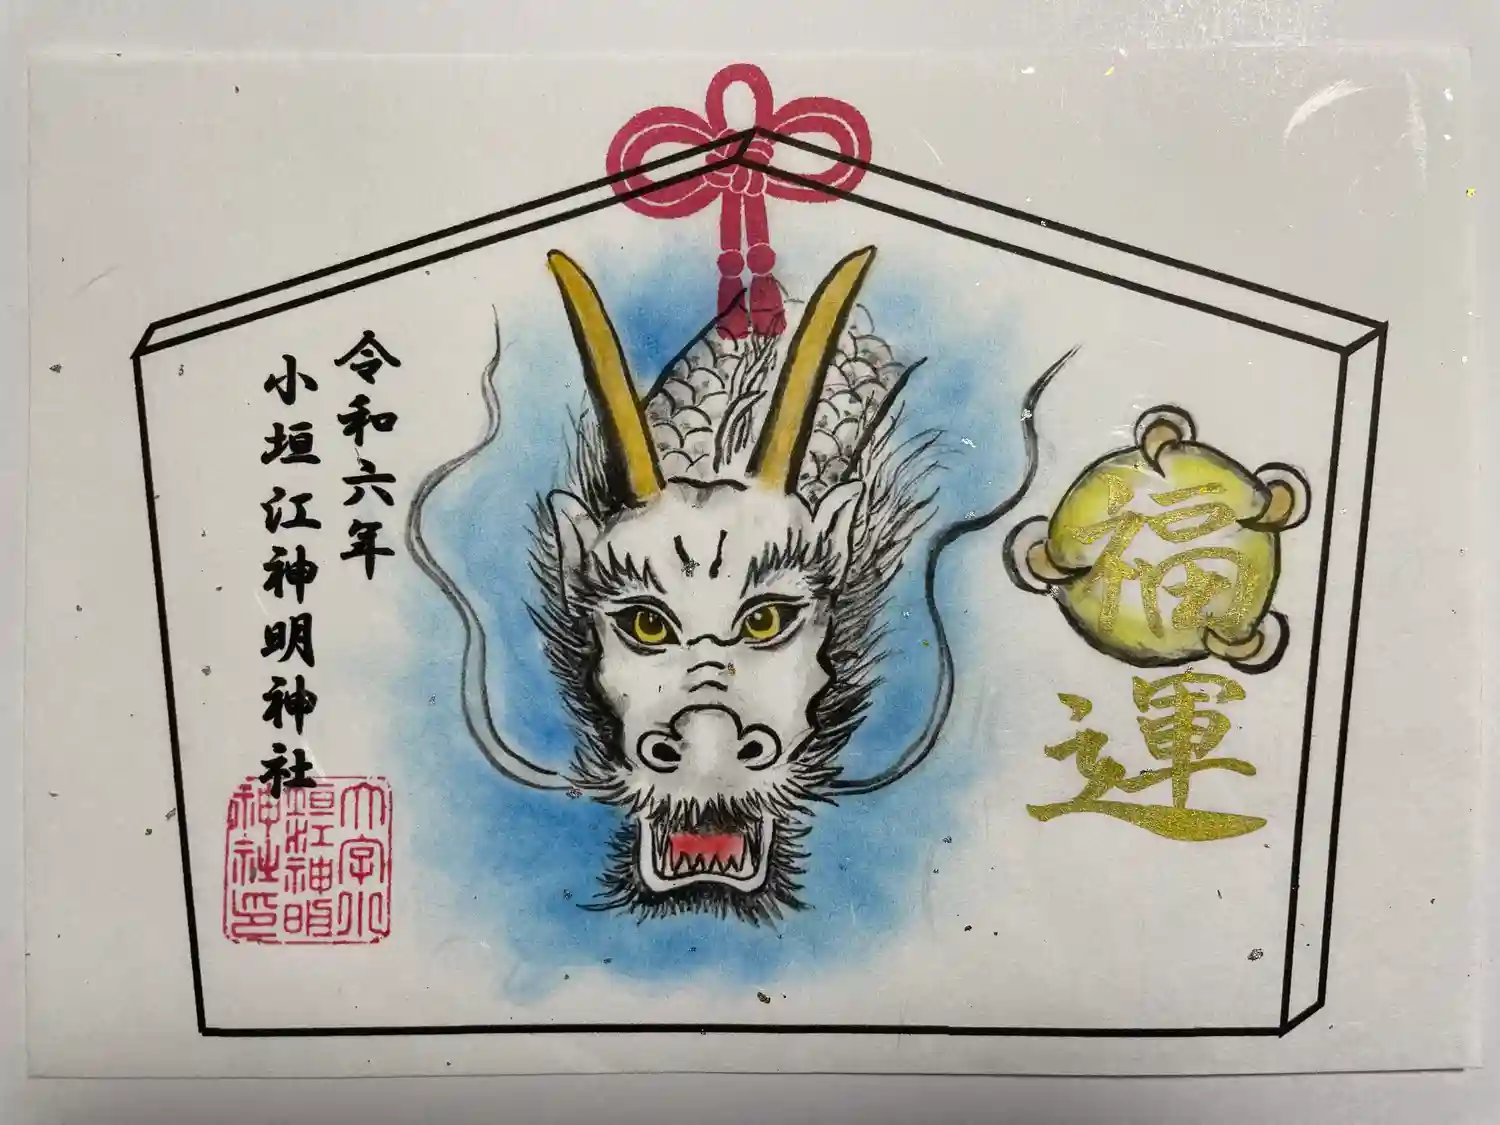 福運
令和六年
小垣江神明神社
大字小
垣江神明
神社印